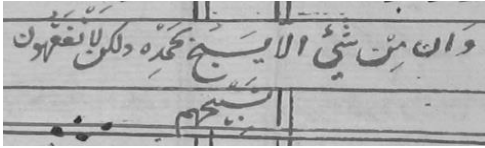 وَان مِّنْ شَيْئٍ الا يسَبِّحُ بحَمْدِّه ولكن لَّا تَفْقَهُون
تَسْبِيْحَهم